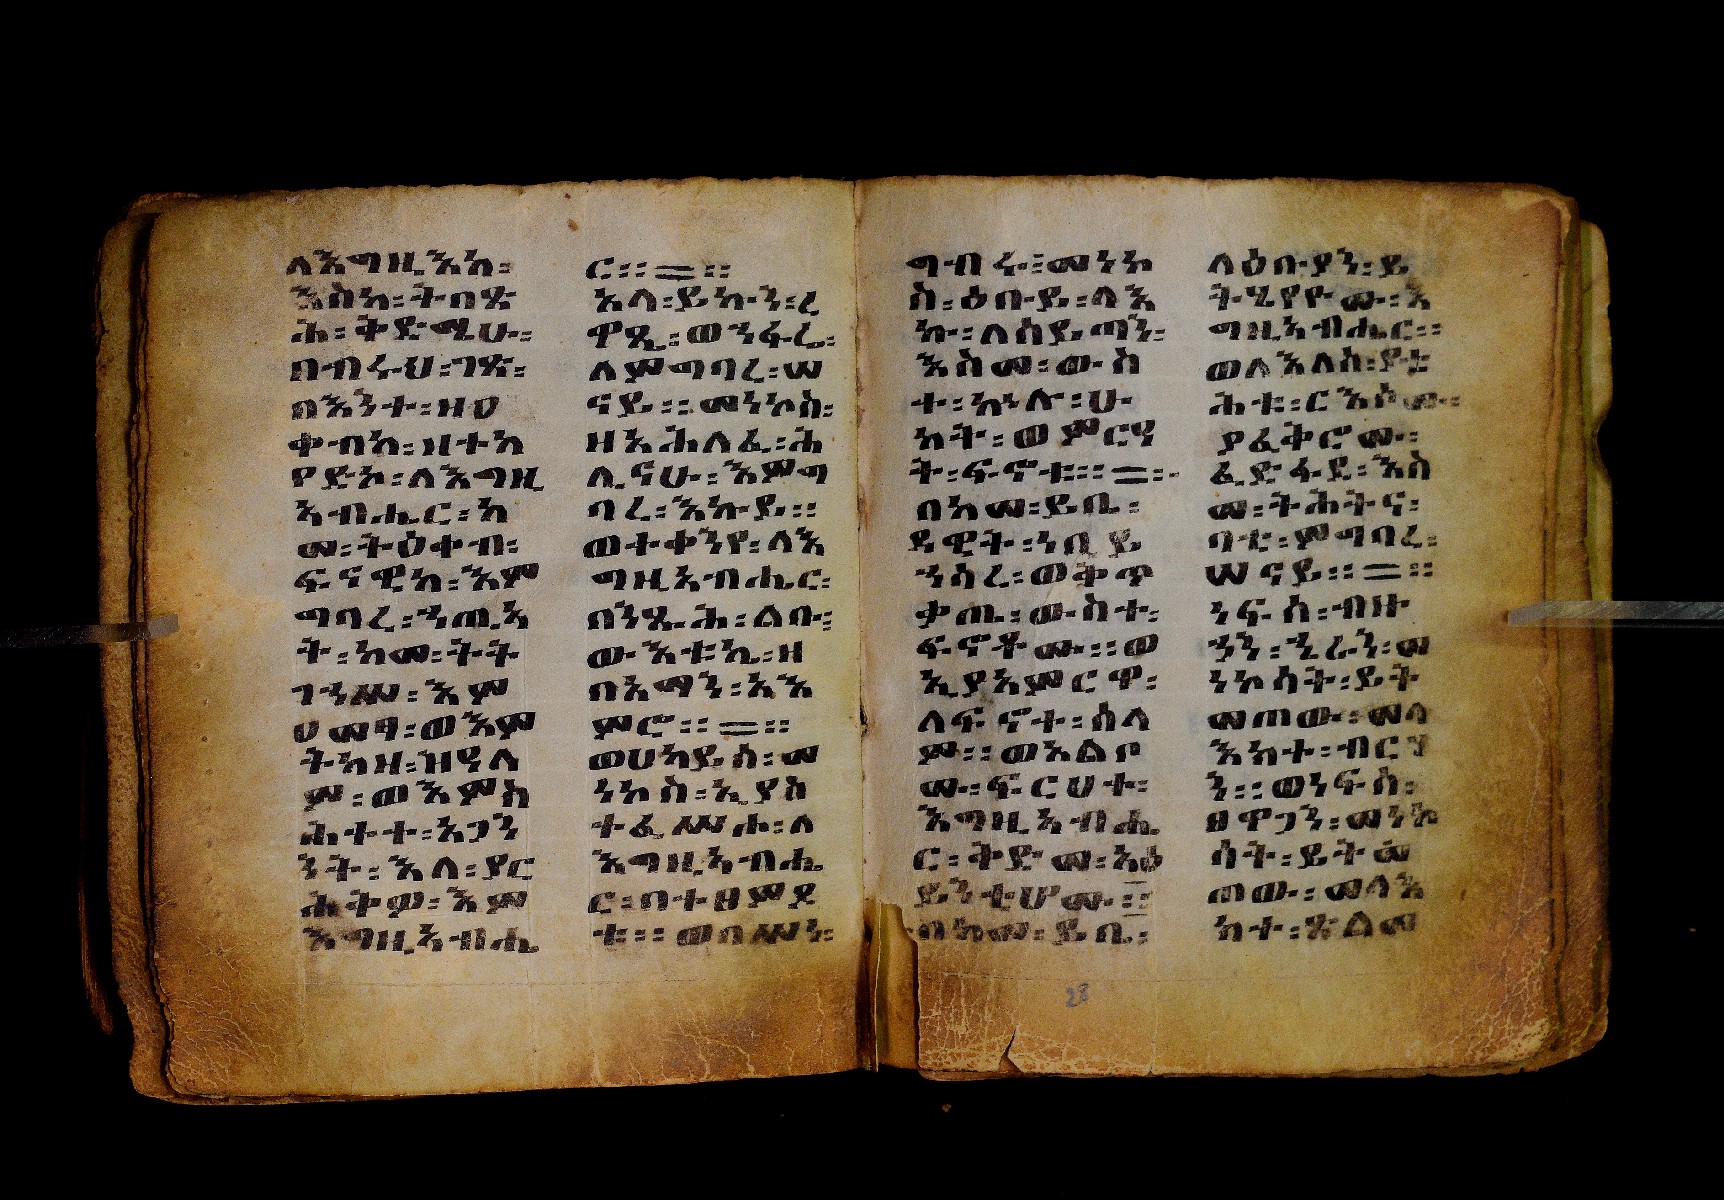 ለእግዚእከ፡
እስከ፡ትበጽ
ሕ፡ቅድሜሁ፡
በብሩህ፡ገጽ፡
በእንተ፡ዘዐ
ቀብከ፡ዘተአ
የድከ፡ለእግዚ
አብሔር፡አ
መ፡ትዕቀብ፡
ፍናዊከ፡እም
ግባረ፡ኀጢአ
ት፡አመ፡ትት
ገኀሥ፡እም
ዐመፃ፡ወእም
ትካዘ፡ዝዓለ
ም፡ወእምስ
ሕተተ፡አጋን
ንት፡እለ፡ያር
ሕቅዎ፡እም
እግዚአብሔ
ር።=።
እለ፡ይኩን፡ረ
ዋጺ፡ወንፉረ፡
ለምግባረ፡ሠ
ናይ።መነኮስ፡
ዘአሕለፈ፡ሕ
ሊናሁ፡እምግ
ባረ፡እኩይ።
ወተቀንየ፡ለእ
ግዚአብሔር፡
በንጹሕ፡ልቡ፡
ውእቱ፡ኬ፡ዘ
በአማን፡አእ
ምሮ።=።
ወሀካይ፡ሰ፡መ
ነኮስ፡ኢያስ
ተፈሥሖ፡ለ
እግዚአብሔ
ር፡በተፀምዶ
ቱ።ወበሥነ፡
ግብሩ፡መነኮ
ስ፡ዕቡይ፡ለእ
ኩ፡ለሰይጣን፡
እስመ፡ውስ
ተ፡ኵሉ፡ሀ
ከት፡ወምርዓ
ት፡ፍኖቱ።=።
በከመ፡ይቤ፡
ዳዊት፡ነቢይ
ኀሰረ፡ወቅጥ
ቃጤ፡ውስተ፡
ፍኖቶሙ።ወ
ኢያእምርዋ፡
ለፍኖተ፡ሰላ
ም።ወአልቦ
ሙ፡ፍርሀተ፡
እግዚአብሔ
ር፡ቅድመ፡አዕ
ይንቲሆሙ።
በከመ፡ይቤ፡
ለዕቡያን፡ይ
ትቃየዮሙ፡እ
ግዚአብሔር።
ወለእለሰ፡ያቴ
ሕቱ፡ርእሰሙ፡
ያፈቅሮሙ፡
ፈድፋደ፡እስ
መ፡ትሕትና
ባቲ፡ምግባረ፡
ሠናይ።=።
ነፍሰ፡ብዙ
ኀን፡ኄራን፡መ
ነኮሳት፡ይት
መጠው፡መላ
እክተ፡ብርሃ
ን።ወነፍሰ፡
ፀዋጋን፡መነኮ
ሳት፡ይትመ
ጠው፡መላእ
ክተ፡ጽልመ
28